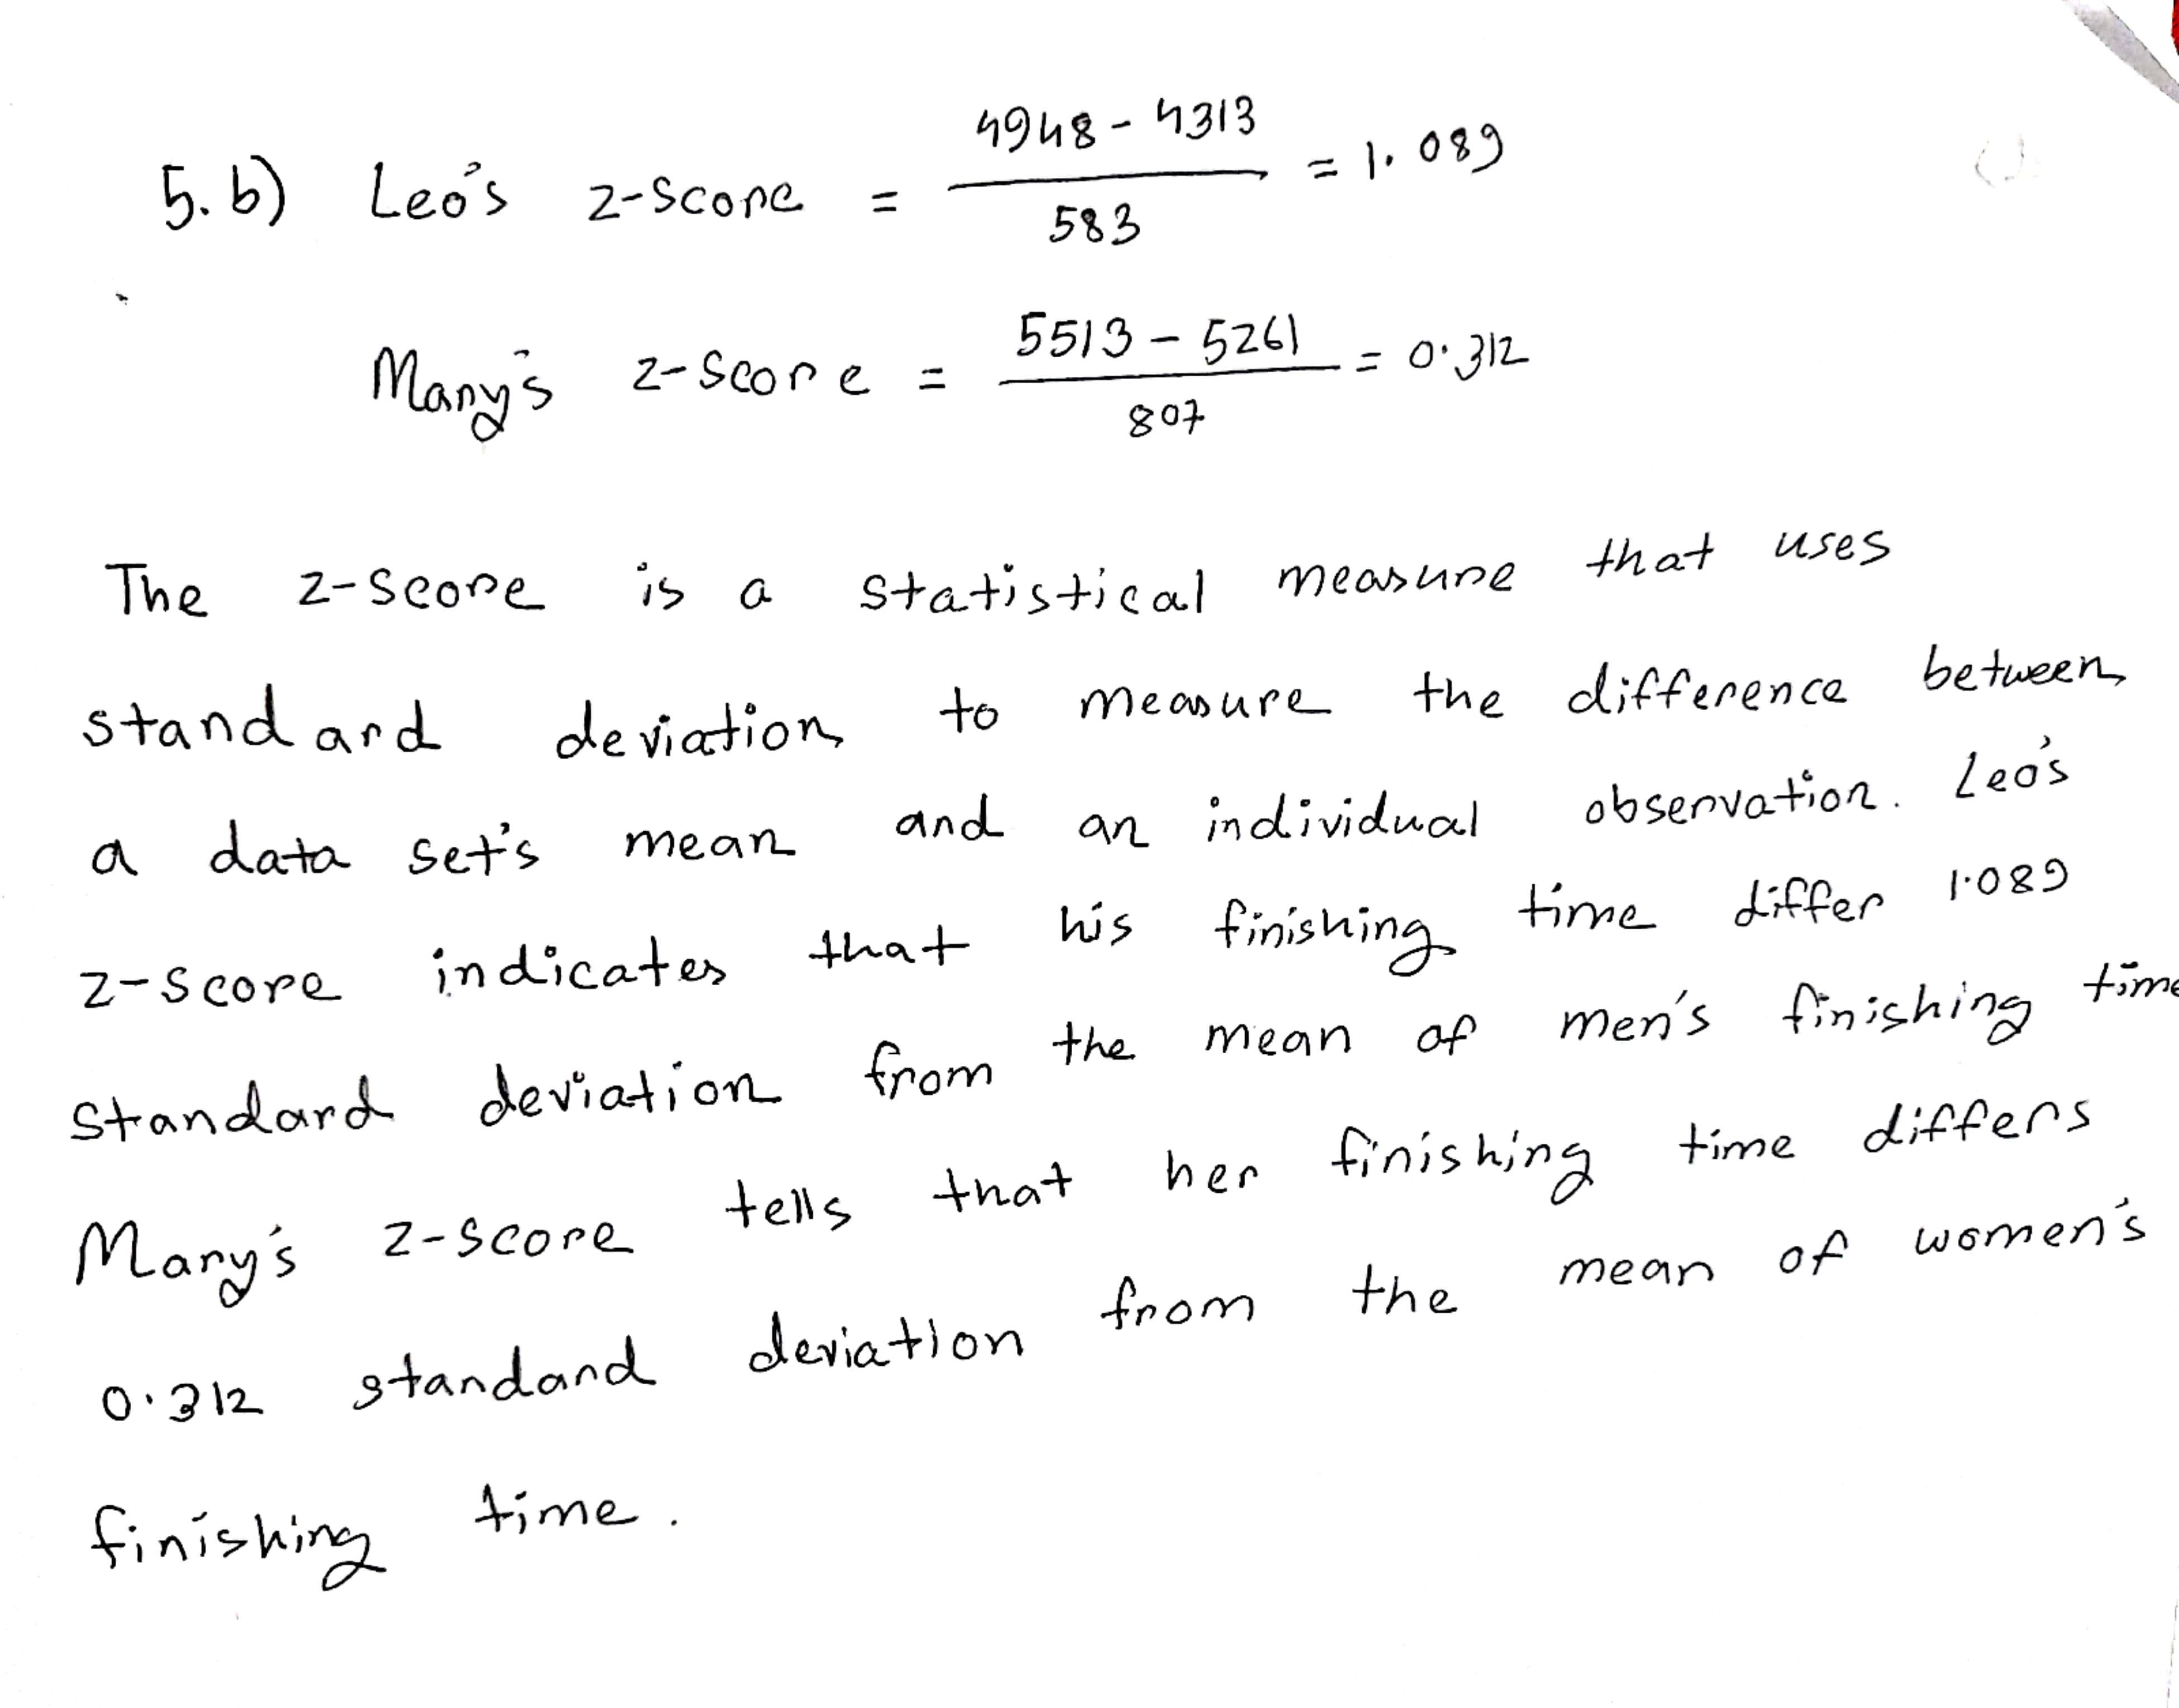 5. b) Leo's z-score = 4948 - 4313 / 583 = 1.089
Mary's z-score = 5513 - 5261 / 807 = 0.312
The z-score is a statistical measure that uses
standard deviation to measure the difference between
a data set's mean and an individual observation. Leo's
z-score indicates that his finishing time differ 1.089
standard deviation from the mean of men's finishing time
Mary's z-score tells that her finishing time differs
0.312 standard deviation from the mean of women's
finishing time.